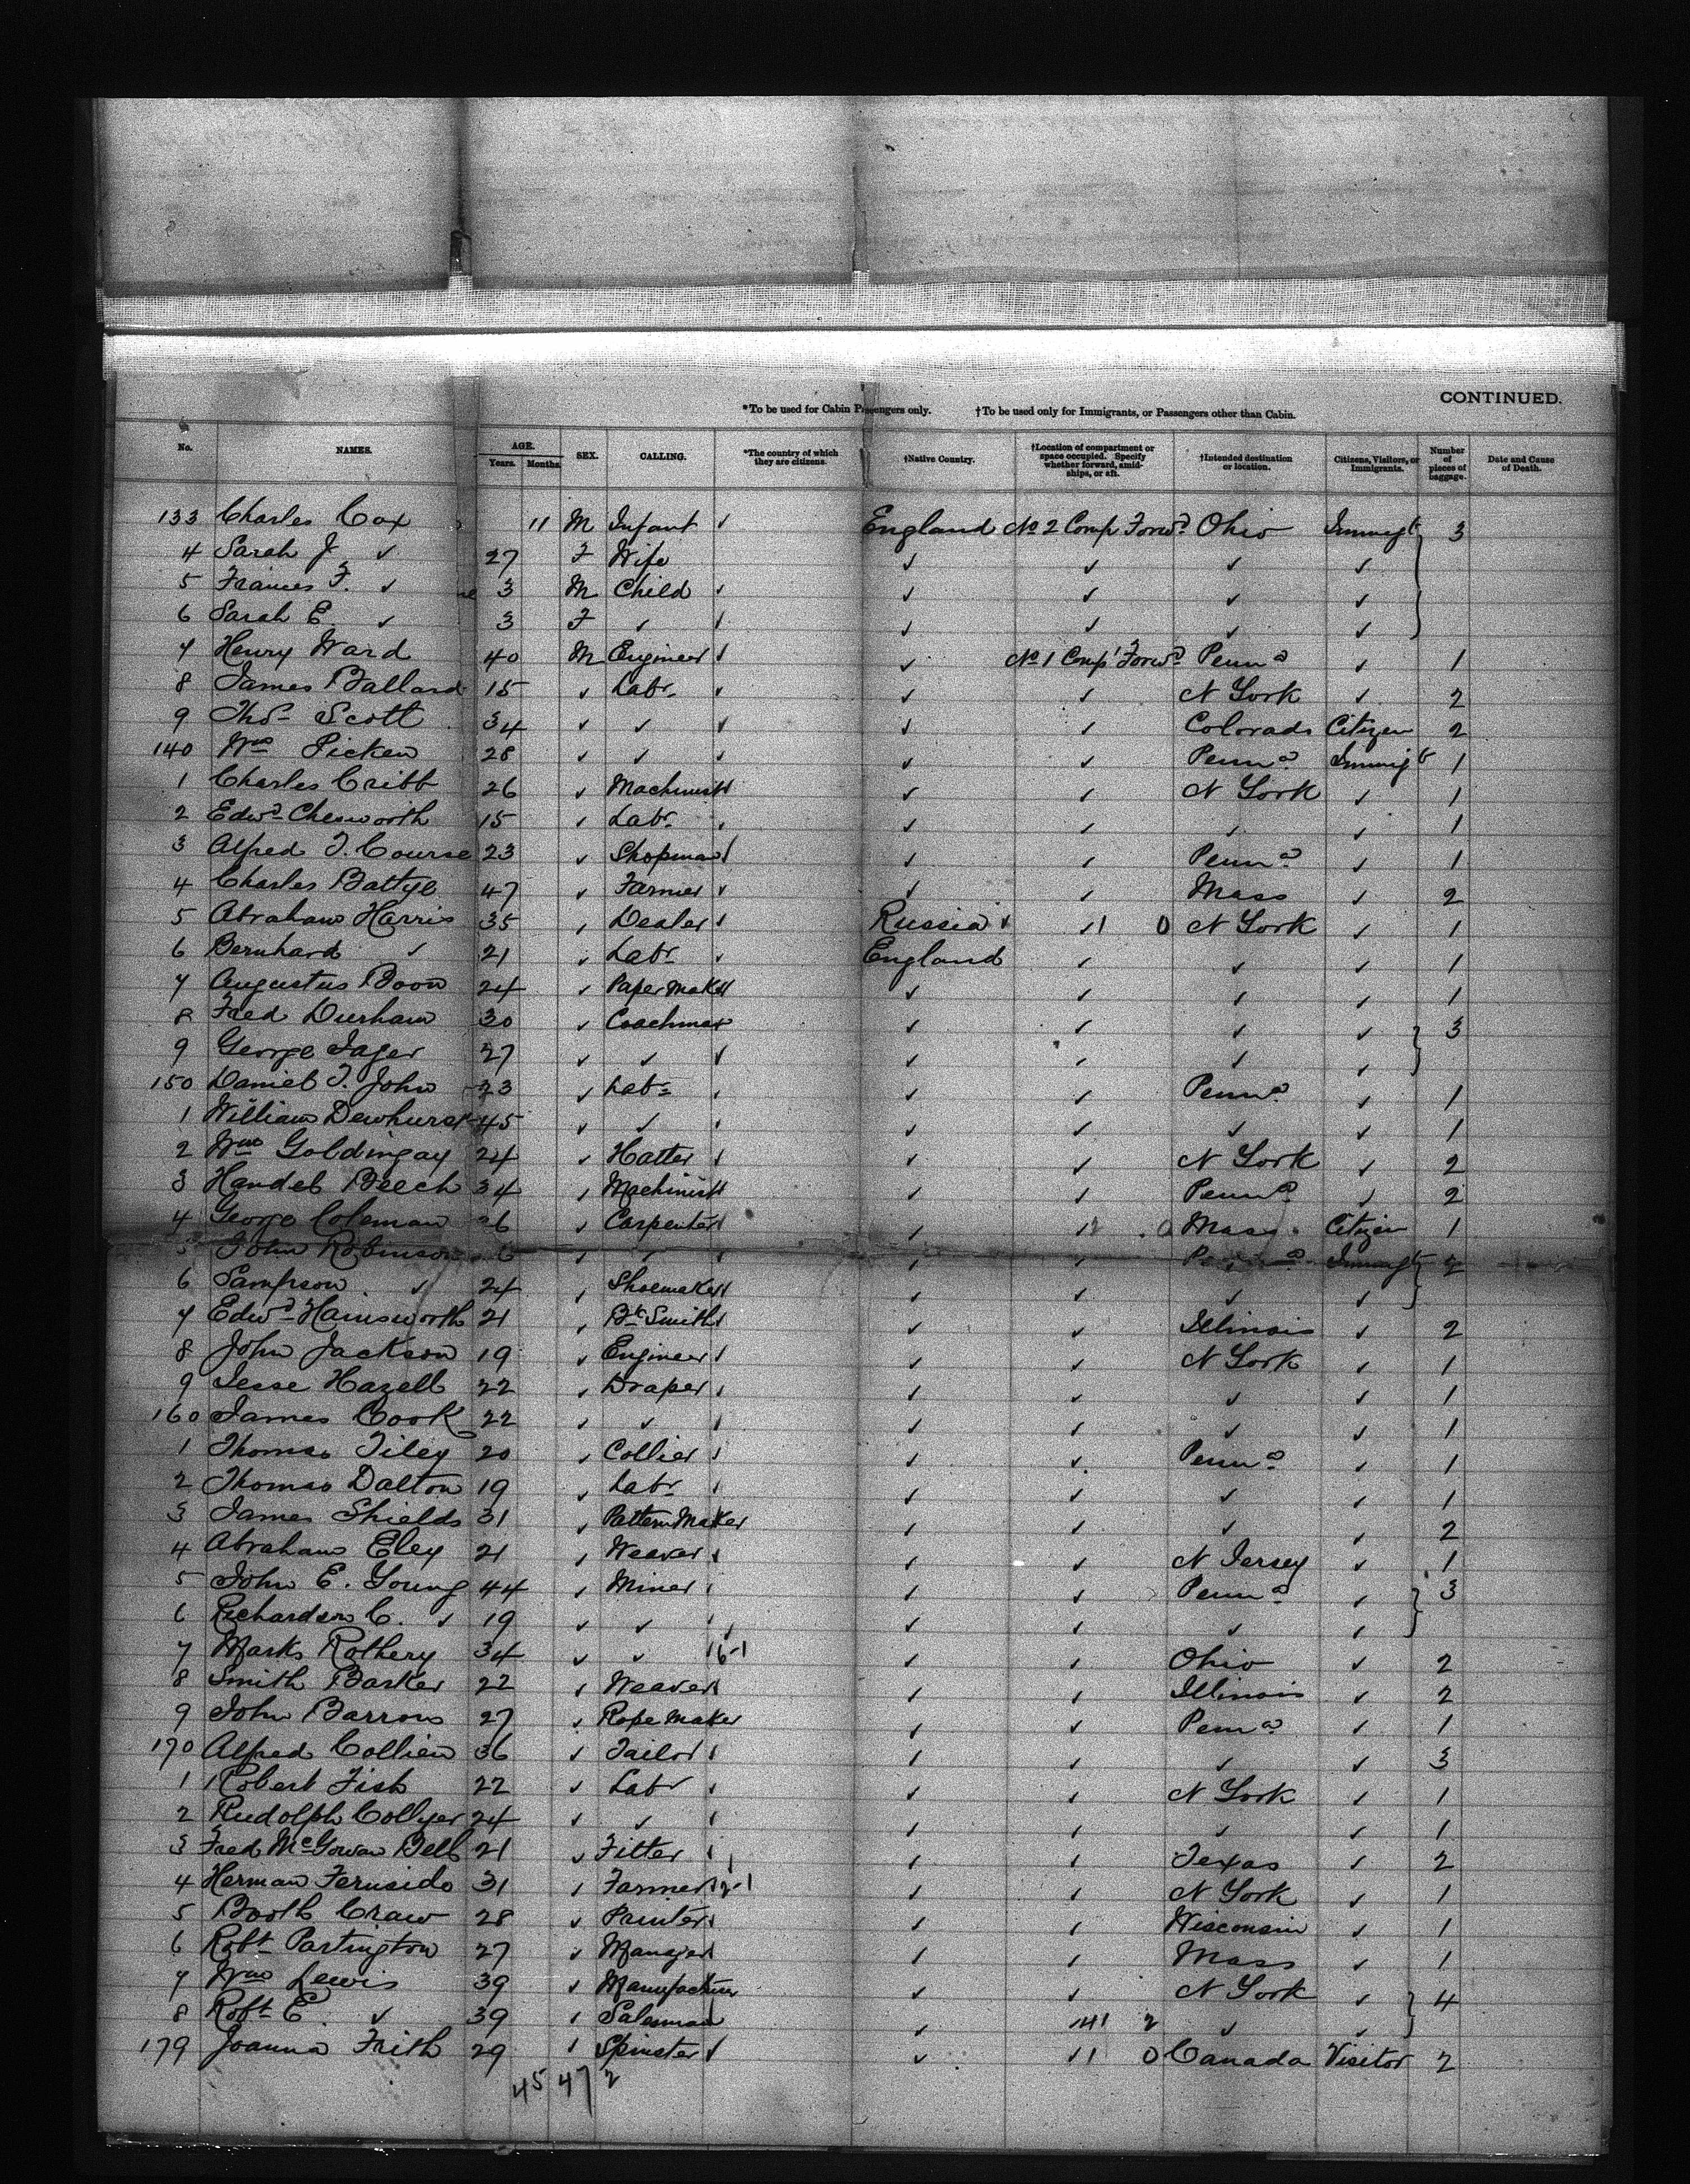 CONTINUED.
*To be used for Cabin Passengers only. †To be used only for Immigrants, or Passengers other than Cabin.
No. NAMES. AGE. Years. Months. SEX. CALLING. *The country of which they are citizens. †Native Country. †Location of compartment or space occupied. Specify whether forward, amidships, or aft. †Intended destination or location. Citizens, Visitors, or Immigrants. Number of pieces of baggage. Date and Cause of Death.
133 Charles Cox 11 M Infant ✓ England No 2 Comp Forwd Ohio Immigt 3
4 Sarah J ✓ 27 F Wife ✓ ✓ ✓ ✓
5 Frances F. ✓ 3 M Child ✓ ✓ ✓ ✓ ✓
6 Sarah E. ✓ 3 F ✓ ✓ ✓ ✓ ✓ ✓
7 Henry Ward 40 M Engineer ✓ ✓ No 1 Compt Forwd Penna ✓ 1
8 James Ballard 15 ✓ Labr ✓ ✓ ✓ N York ✓ 2
9 Thos Scott 34 ✓ ✓ ✓ ✓ ✓ Colorado Citizen 2
140 Wm Picken 28 ✓ ✓ ✓ ✓ ✓ Penna Immigt 1
1 Charles Cribb 26 ✓ Machinist ✓ ✓ ✓ N York ✓ 1
2 Edwd Chesworth 15 ✓ Labr ✓ ✓ ✓ ✓ ✓ 1
3 Alfred T. Course 23 ✓ Shopman ✓ ✓ ✓ Penna ✓ 1
4 Charles Battye 47 ✓ Farmer ✓ ✓ ✓ Mass ✓ 2
5 Abraham Harris 35 ✓ Dealer ✓ Russia ✓ ✓ 1 0 N York ✓ 1
6 Bernhard ✓ 21 ✓ Labr ✓ England ✓ ✓ ✓ 1
7 Augustus Boon 24 ✓ Paper Maker ✓ ✓ ✓ ✓ 1
8 Fred Durham 30 ✓ Coachman ✓ ✓ ✓ ✓ 3
9 George Jager 27 ✓ ✓ ✓ ✓ ✓ ✓ ✓
150 Daniel T. John 23 ✓ Labr ✓ ✓ ✓ Penna ✓ 1
1 William Dewhurst 45 ✓ ✓ ✓ ✓ ✓ ✓ ✓ 1
2 Wm Goldingay 24 ✓ Hatter ✓ ✓ ✓ N York ✓ 2
3 Handel Beech 34 ✓ Machinist ✓ ✓ ✓ Penna ✓ 2
4 George Coleman 26 ✓ Carpenter ✓ ✓ Mass Citizen 1
5 John Robinson ✓ ✓ ✓ ✓ ✓ Penna Immigt 2
6 Sampson ✓ 24 ✓ Shoemaker ✓ ✓ ✓ ✓ ✓
7 Edwd Hainsworth 21 ✓ Bk Smith ✓ ✓ ✓ Illinois ✓ 2
8 John Jackson 19 ✓ Engineer ✓ ✓ ✓ N York ✓ 1
9 Jesse Hazell 22 ✓ Draper ✓ ✓ ✓ ✓ ✓ 1
160 James Cook 22 ✓ ✓ ✓ ✓ ✓ ✓ ✓ 1
1 Thomas Tiley 20 ✓ Collier ✓ ✓ ✓ Penna ✓ 1
2 Thomas Dalton 19 ✓ Labr ✓ ✓ ✓ ✓ ✓ 1
3 James Shields 31 ✓ Pattern Maker ✓ ✓ ✓ ✓ 2
4 Abraham Eley 21 ✓ Weaver ✓ ✓ ✓ N Jersey ✓ 1
5 John E. Young 44 ✓ Miner ✓ ✓ ✓ Penna ✓ 3
6 Richardson C. ✓ 19 ✓ ✓ ✓ ✓ ✓ ✓ ✓
7 Marks Rothery 34 ✓ ✓ 16-1 ✓ ✓ Ohio ✓ 2
8 Smith Barker 22 ✓ Weaver ✓ ✓ ✓ Illinois ✓ 2
9 John Barrows 27 ✓ Rope Maker ✓ ✓ Penna ✓ 1
170 Alfred Collien 36 ✓ Tailor ✓ ✓ ✓ ✓ ✓ 3
1 Robert Fish 22 ✓ Labr ✓ ✓ ✓ N York ✓ 1
2 Rudolph Collyer 24 ✓ ✓ ✓ ✓ ✓ ✓ ✓ 1
3 Fred McGowan Bell 21 ✓ Fitter ✓ ✓ ✓ Texas ✓ 2
4 Herman Fernside 31 ✓ Farmer ✓ ✓ N York ✓ 1
5 Booth Craw 28 ✓ Painter ✓ ✓ ✓ Wisconsin ✓ 1
6 Robt Partington 27 ✓ Manager ✓ ✓ ✓ Mass ✓ 1
7 Wm Lewis 39 ✓ Manufacturer ✓ ✓ N York ✓ 4
8 Robt E. ✓ 39 ✓ Salesman ✓ 141 2 ✓ ✓
179 Joanna Frith 29 ✓ Spinster ✓ ✓ ✓ 1 0 Canada Visitor 2
45 47 2